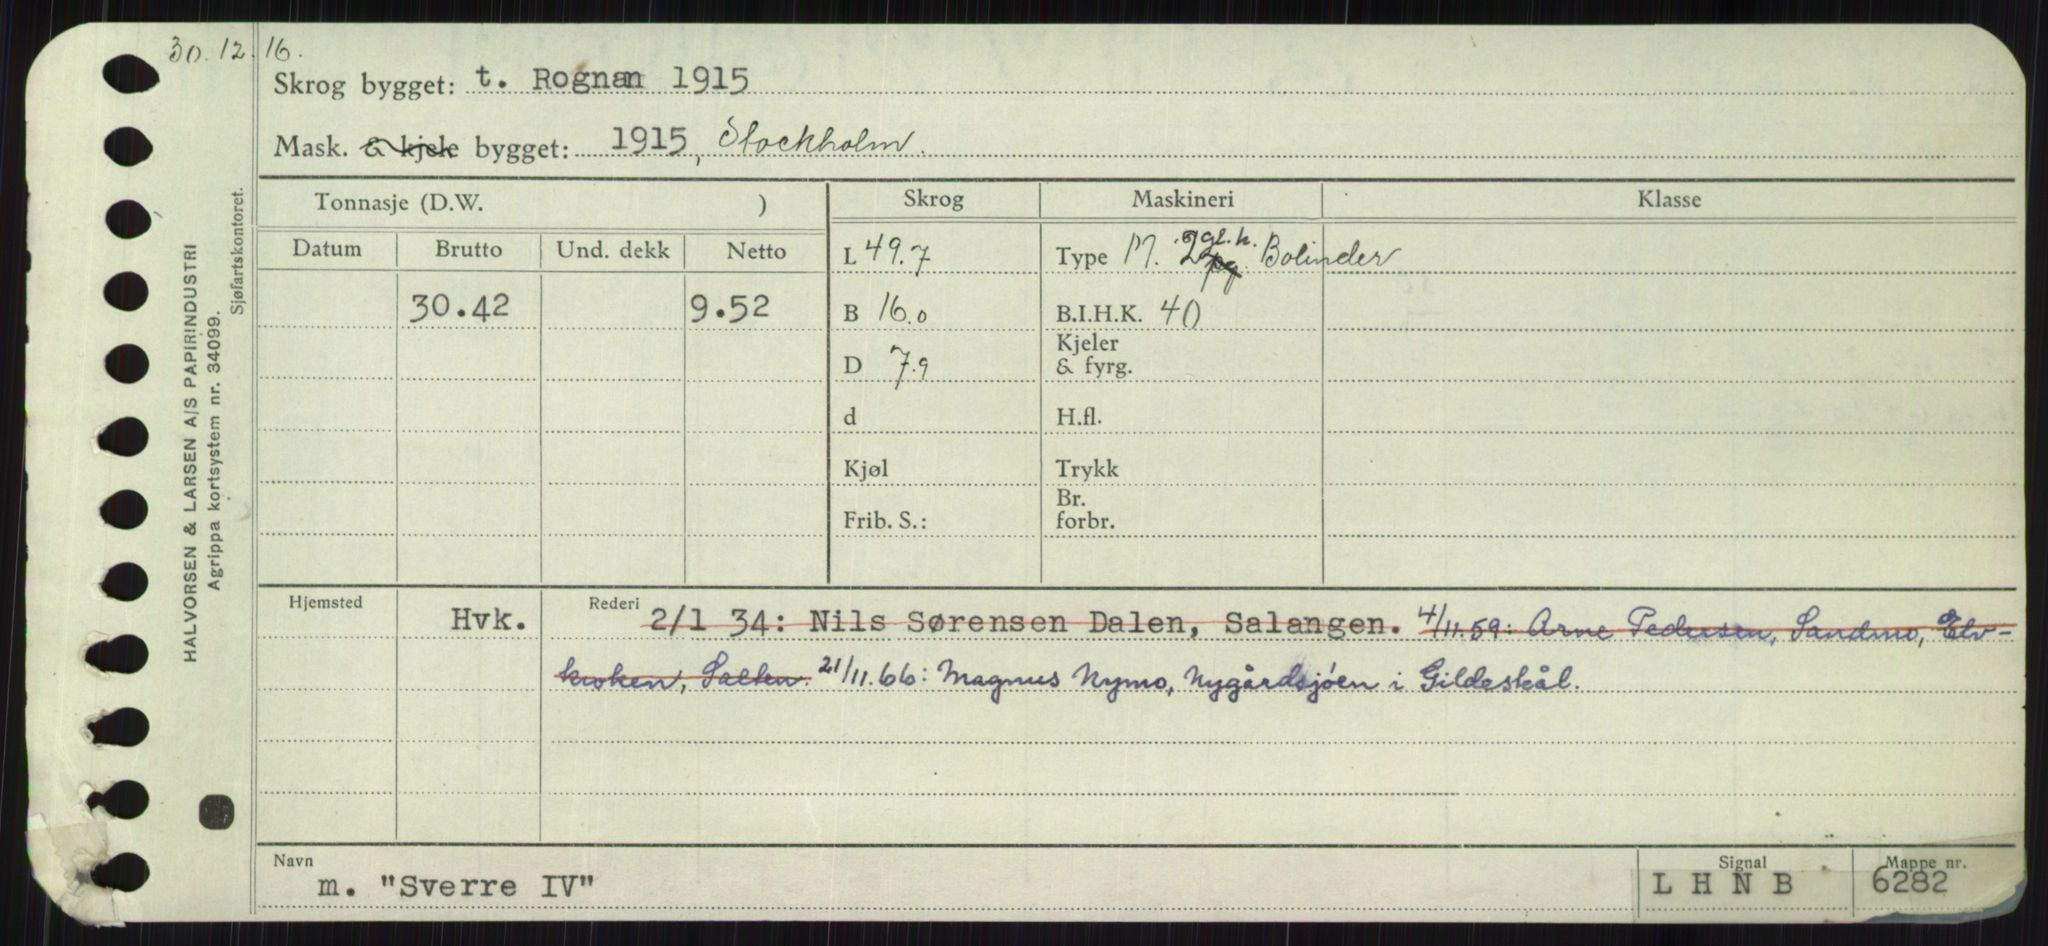 30.12.16.
Skrog bygget: t. Rognan 1915
Mask. & kjele bygget: 1915, Stockholm.
Tonnasje (D.W. )
Skrog
Maskineri
Klasse
Datum
Brutto
Und. dekk
Netto
30.42
9.52
L 49.7
B 16.0
D 7.9
d
Kjøl
Frib. S.:
Type M. 2 gl.h. Bolinder
B.I.H.K. 40
Kjeler
& fyrg.
H.fl.
Trykk
Br.
forbr.
Hjemsted
Hvk.
Rederi
2/1 34: Nils Sørensen Dalen, Salangen. 4/11.59: Arne Pedersen, Sandmo, Elv-
kroken, Salten. 21/11.66: Magnus Nymo, Nygårdsjøen i Gildeskål.
Navn
m. "Sverre IV"
Signal
L H N B
Mappe nr.
6282
HALVORSEN & LARSEN A/S PAPIRINDUSTRI
Agrippa kortsystem nr. 34099.
Sjøfartskontoret.